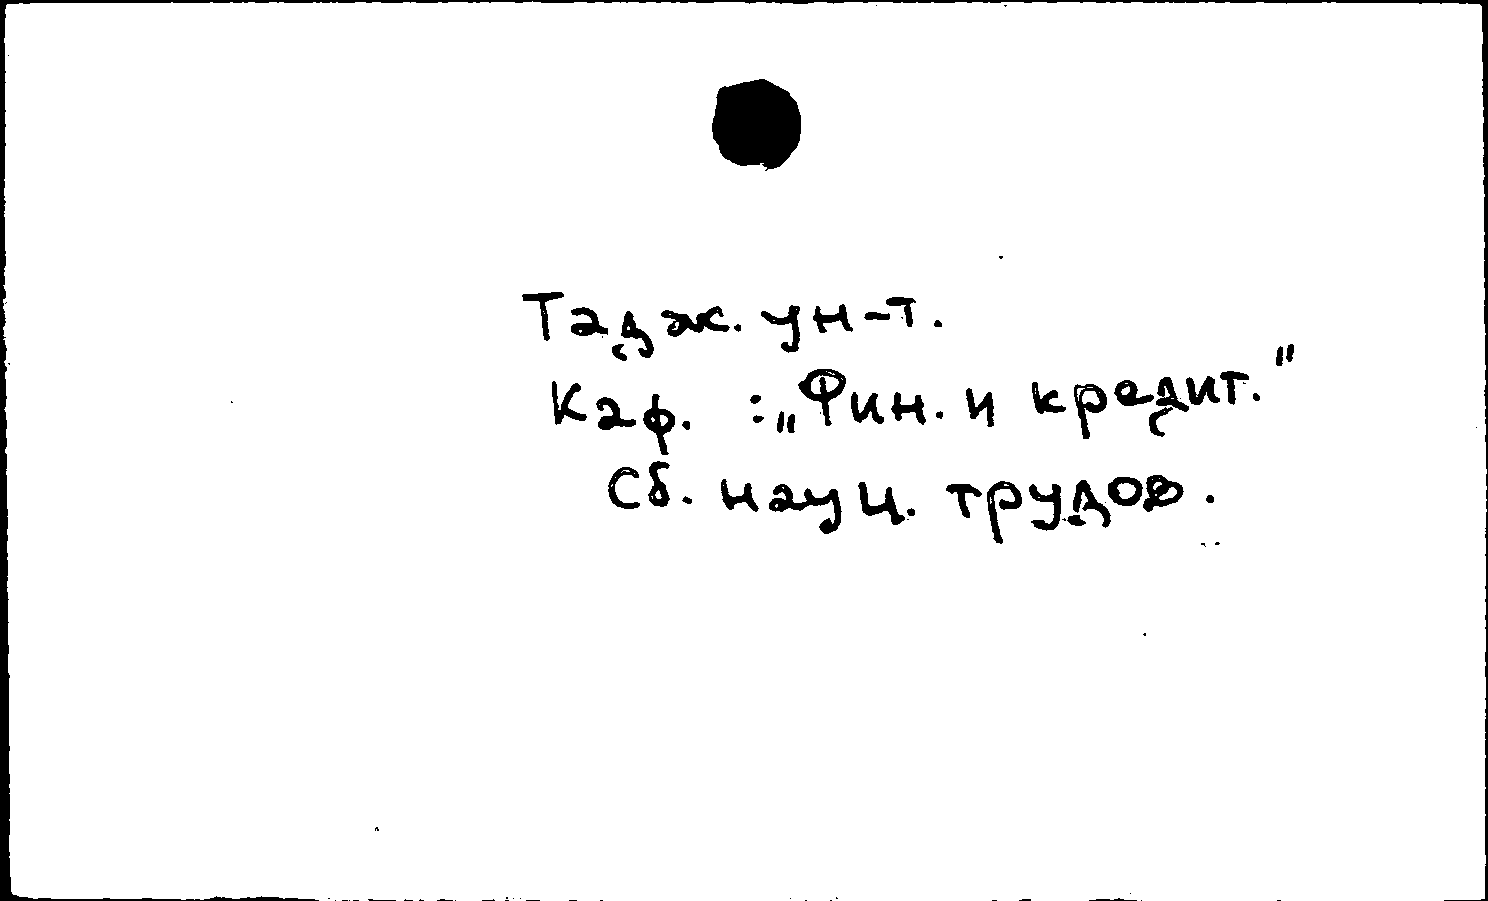 Тадж. ун-т.
Каф. : „Фин. и кредит."
Сб. науч. трудов.